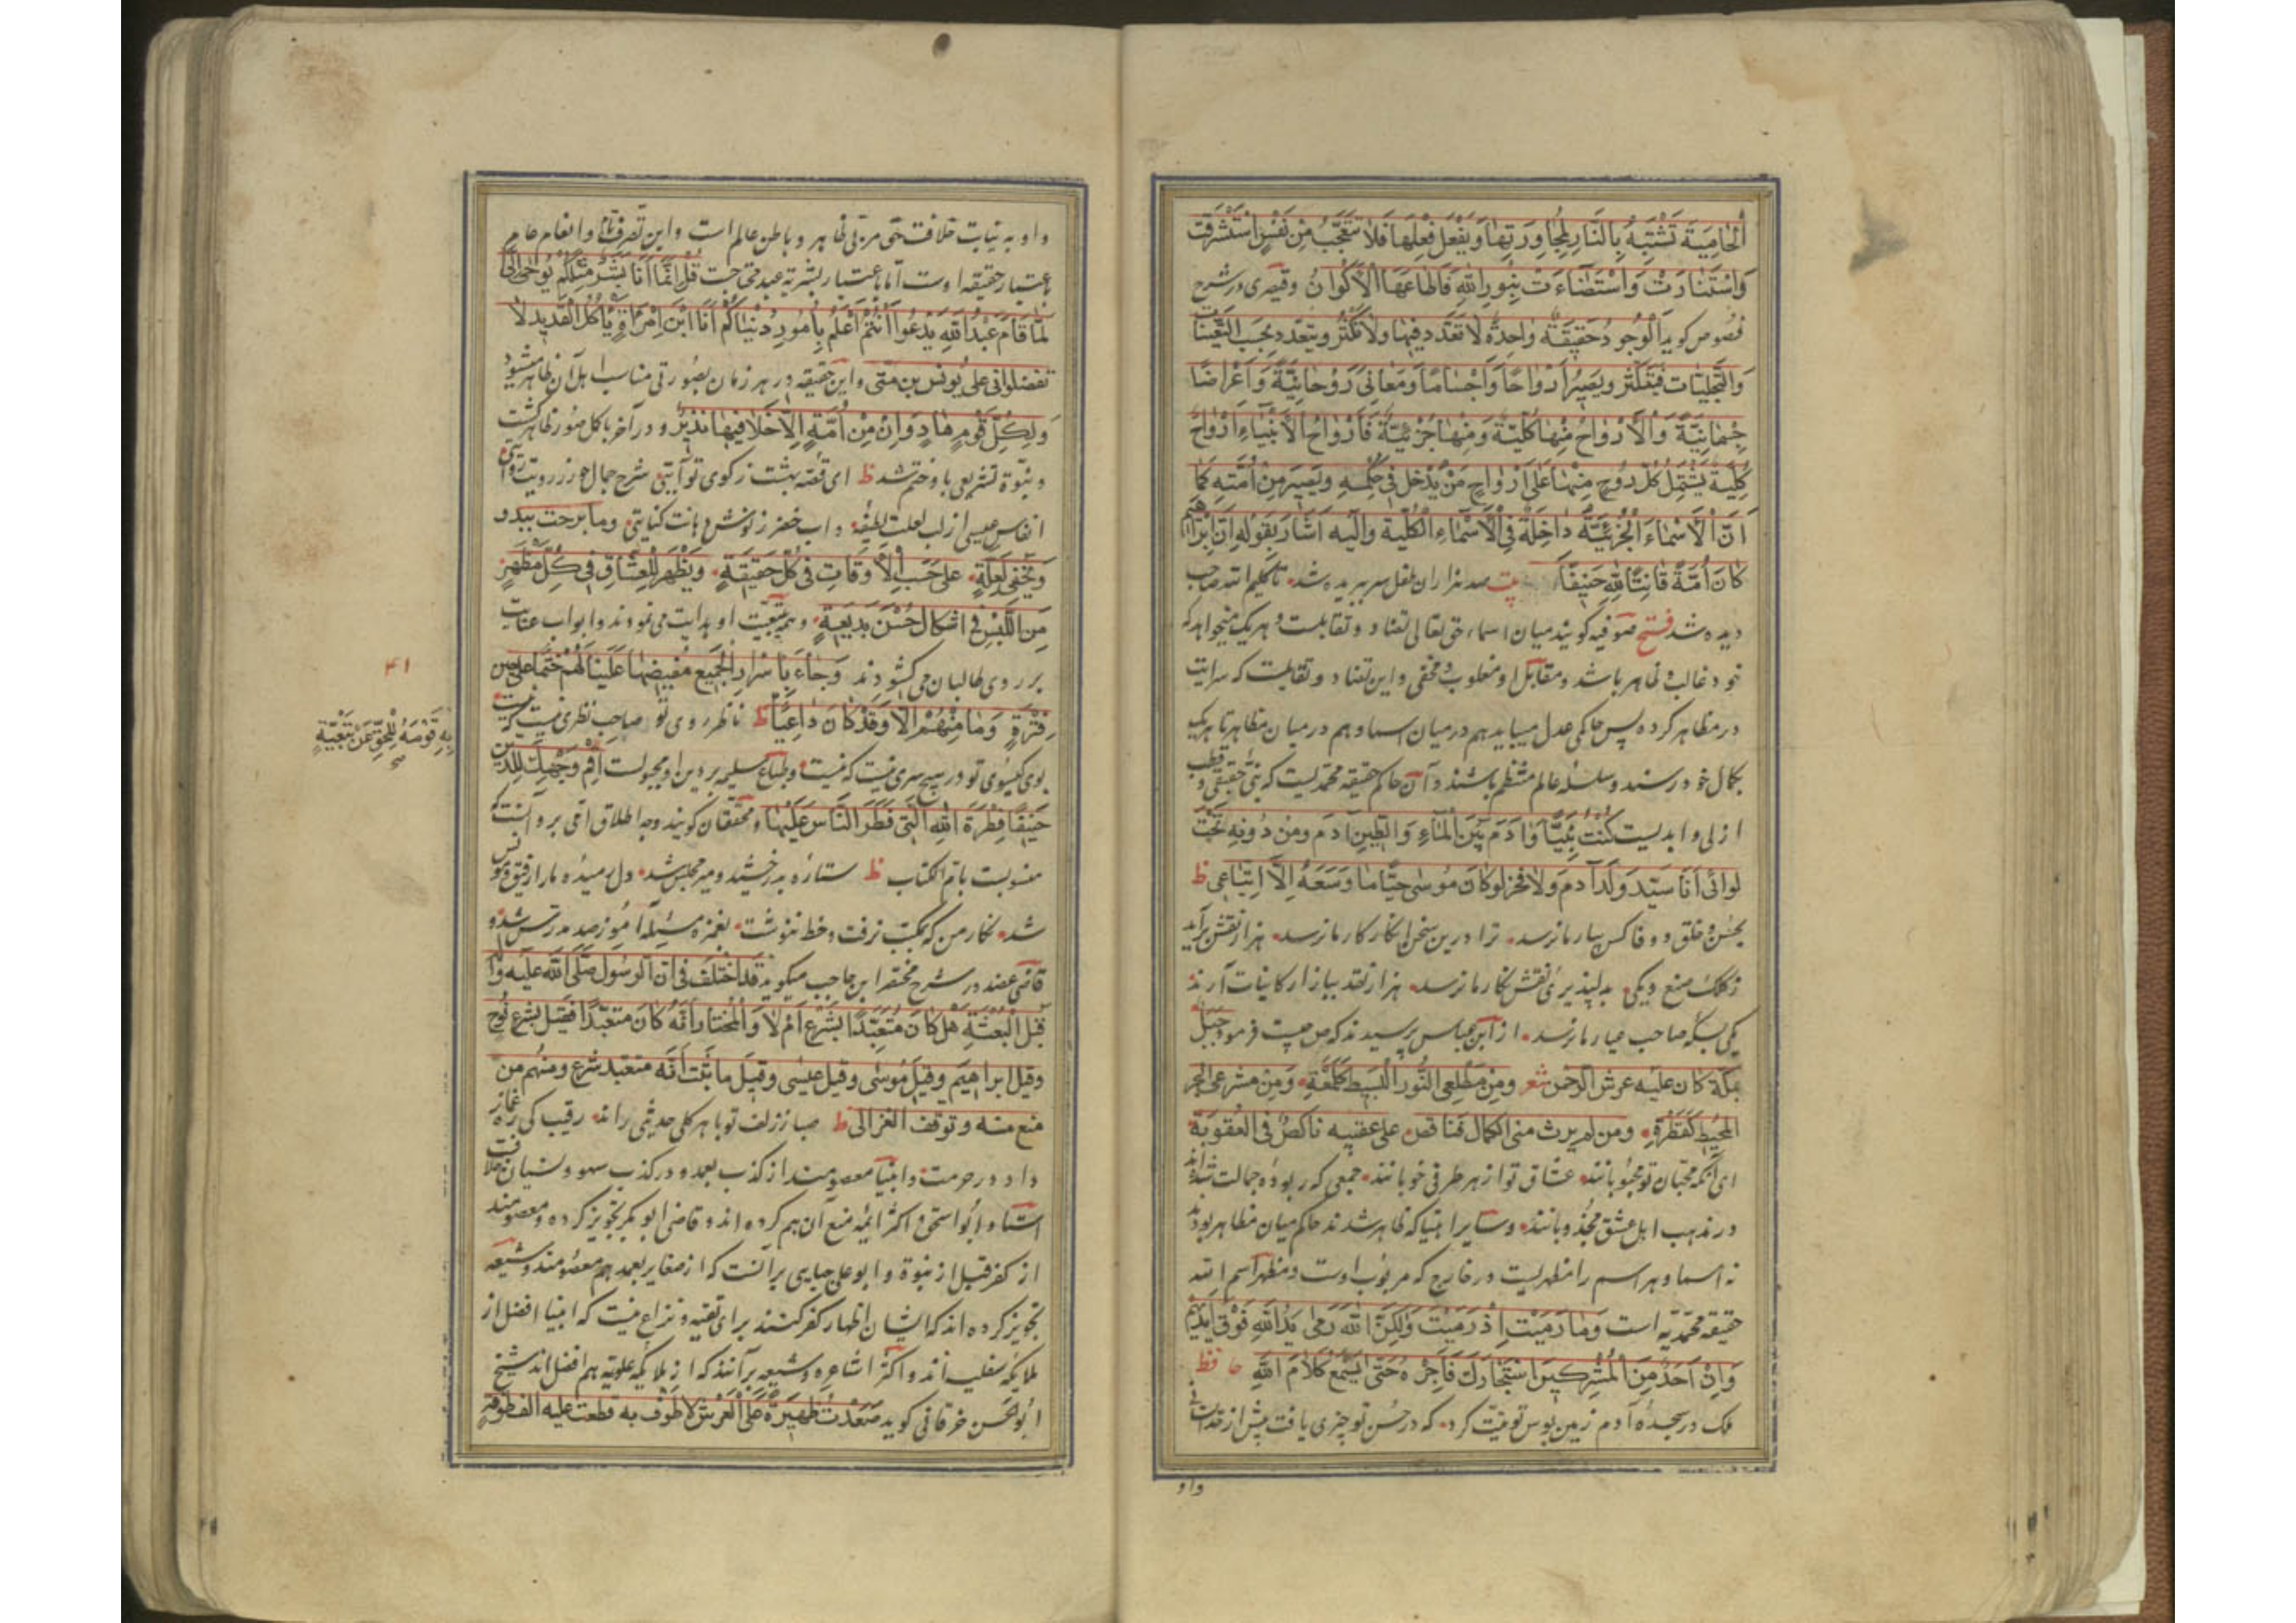 الحامیة تشتبه بالنار لمجاورتها و یفعل فعلها فلا تتعجب من نفس استشرقت
و استنارت و استضاءت بنور الله فاطاعها الاکوان و قیصری در شرح
فصوص کوید الوجود حقیقة واحدة لا تعدد فیها و لا تکثر و یتعدد بحسب التعینات
و التجلیات فیتکثر و یصیر ارواحا و اجساما و معانی روحانیة و اعراضا
جسمانیة و الارواح منها کلیة و منها جزئیة فارواح الانبیاء ارواح
کلیة یشتمل کل روح منها علی ارواح من یدخل فی حکمه و یصیر من امته کما
ان الاسماء الجزئیة داخلة فی الاسماء الکلیة و الیه اشار بقوله ان ابراهیم
کان امة قانتا لله حنیفا بیت صد هزاران طفل سر ببریده شد تا کلیم الله صاحب
دیده شد فتح صوفیه کویند میان اسماء حق تعالی تضاد و تقابلست و هر یک میخواهد که
خود غالب و ظاهر باشد و مقابل او مغلوب و مخفی و این تضاد و تقابلست که سرایت
در مظاهر کرده پس حاکمی عدل میباید هم در میان اسما و هم در میان مظاهر تا هر یک
بکمال خود رسند و سلسله عالم منتظم باشند و آن حاکم حقیقه محمدیست که نبی حقیقی و قطب
ازلی و ابدیست کنت نبیا و ادم بین الماء و الطین ادم و من دونه تحت
لوائی انا سید ولد آدم و لا فخر لو کان موسی حیا ما وسعه الا اتباعی ظ
بحسن و خلق و وفا کس بیار ما نرسد ترا درین سخن انکار کار ما نرسد هزار نقش برآید
ز کلک صنع و یکی بدلپذیری نقش نکار ما نرسد هزار نقد ببازار کاینات آرند
یکی بسکه صاحب عیار ما نرسد از ابن عباس پرسیدند که ص چیست فرمود جبل
بمکة کان علیه عرش الرحمن شعر و من مطلعی النور البسیط کلمعة و من مشرعی البحر
المحیط کقطرة و من لم یرث منی الکمال فناقص علی عقبیه ناکص فی العقوبة
ای آنکه محبان تو محبوبانند عشاق تو از هر طرفی خوبانند جمعی که ربوده جمالت شده‌اند
در مذهب اهل عشق مجذوبانند و سایر انبیا که ظاهر شدند حاکم میان مظاهر بودند
نه اسما و هر اسم را مظهریست در خارج که مربوب اوست و مظهر اسم الله
حقیقه محمدیه است و ما رمیت اذ رمیت و لکن الله رمی ید الله فوق ایدیهم
و ان احد من المشرکین استجارک فاجره حتی یسمع کلام الله حافظ
ملک در سجده آدم زمین بوس تو نیت کرد که در حسن تو چیزی یافت بیش از حد انسانی
واو
واو به نیابت خلافت حق مربی ظاهر و باطن عالم است و این تصرف تام و انعام عام
باعتبار حقیقه اوست اما باعتبار بشریة عبد محتاجست قل انما انا بشر مثلکم یوحی الی
لما قام عبد الله یدعو انتم اعلم بامور دنیاکم انا ابن امراة یاکل القدید لا
تفضلوانی علی یونس بن متی و این حقیقه در هر زمان بصورتی مناسب اهل آن ظاهر میشود
و لکل قوم هاد و ان من امة الا خلا فیها نذیر و در آخر باکمل صور ظاهر کشت
و نبوة تشریعی باو ختم شد ظ ای قصه بهشت ز کوی تو آیتی شرح جمال حور ز رویت روایتی
انفاس عیسی از لب لعلت لطیفه و اب خضر ز نوش لبانت کنایتی و ما برحت یبدو
و یخفی لعلة علی حسب الاوقات فی کل حقیقة و یظهر للعشاق فی کل مظهر
من اللبس فی اشکال حسن بدیعة و همه بتبعیت او هدایت می نمودند و ابواب عنایت
بر روی طالبان می کشودند و جاء باسرار الجمیع مفیضها علینا لهم ختما علی حین
فترة و ما منهم الا و قد کان داعیا ظ ناظر روی تو صاحب نظری نیست که نیست
بوی کیسوی تو در هیچ سری نیست که نیست و طباع سلیمه بر دین او مجبولست اقم وجهک للدین
حنیفا فطرة الله التی فطر الناس علیها و محققان کویند وجه اطلاق امی بر و آنست که
منسوبست بام الکتاب ظ ستاره بدرخشید و میر مجلس شد دل رمیده ما را رفیق و مونس
شد نکار من که بمکتب نرفت و خط ننوشت بغمزه مسئله آموز صد مدرس شد و
قاضی عضد در شرح مختصر ابن حاجب میکوید قد اختلف فی ان الرسول صلی الله علیه و آله
قبل البعثة هل کان متعبدا بشرع ام لا و المختار انه کان متعبدا فقیل بشرع نوح
و قیل ابراهیم و قیل موسی و قیل عیسی و قیل ما ثبت انه متعبد شرع و منهم من
منع منه و توقف الغزالی ظ صبا ز زلف تو با هر کلی حدیثی راند رقیب کی ره غماز
داد در حرمت و انبیا معصومند از کذب بعمد و در کذب سهو و نسیان خلافست
استاد ابو اسحق و اکثر ائمه منع آن هم کرده اند و قاضی ابو بکر تجویز کرده و معصومند
از کفر قبل از نبوة و ابو علی جبایی بر آنست که از صغایر بعمد هم معصومند و شیعه
تجویز کرده اند که ایشان اظهار کفر کنند برای تقیه و نزاع نیست که انبیا افضل از
ملایکه سفلیه اند و اکثر اشاعره و شیعه برآنند که از ملایکه علویه هم افضل اند شیخ
ابو الحسن خرقانی کوید صعدت ظهیرة علی العرش لاطوف به فطفت علیه الف طوفة
۴۱
به قومه للحق عن تبعیة
صح